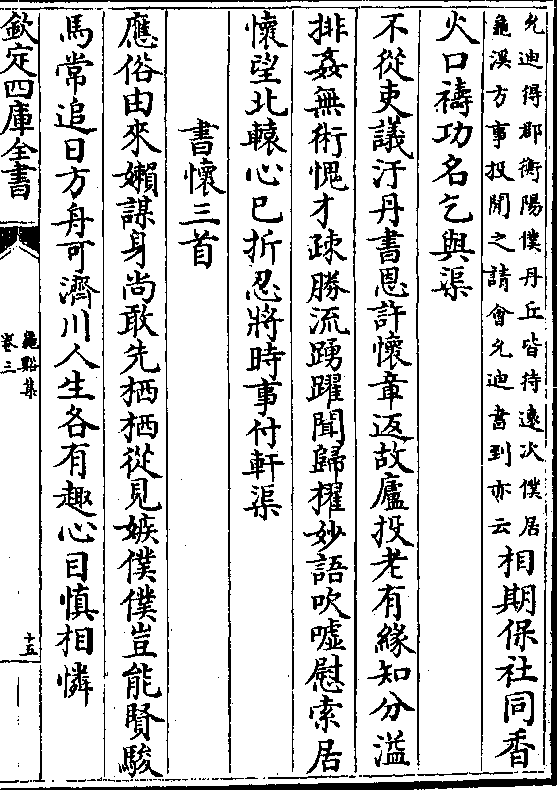 允迪得郡衡陽僕丹丘皆待遠次僕居
龜溪方事投閒之請會允迪書到亦云
相期保社同香
火口禱功名乞與渠
不從吏議汙丹書恩許懷章返故廬投老有緣知分溢
排姦無術愧才疎勝流踴躍聞歸擢妙語吹噓慰索居
懷望北轅心已折忍將時事付軒渠
書懷三首
應俗由來嬾謀身尚敢先栖栖從見嫉僕僕豈能賢駿
馬常追日方舟可濟川人生各有趣心目慎相憐
欽定四庫全書
龜谿集
卷三
十五